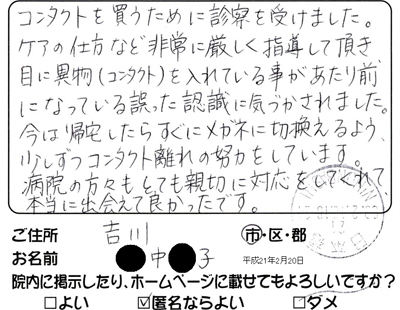 コンタクトを買うために診察を受けました。
ケアの仕方など非常に厳しく指導して頂き
目に異物(コンタクト)を入れている事があたり前
になっている誤った認識に気づかされました。
今は帰宅したらすぐにメガネに切換えるよう、
少しずつコンタクト離れの努力をしています。
病院の方々もとても親切に対応をしてくれて
本当に出会えて良かったです。
ご住所 吉川 市・区・郡
お名前 ●中●子 平成21年2月20日
院内に掲示したり、ホームページに載せてもよろしいですか?
□よい ☑匿名ならよい □ダメ